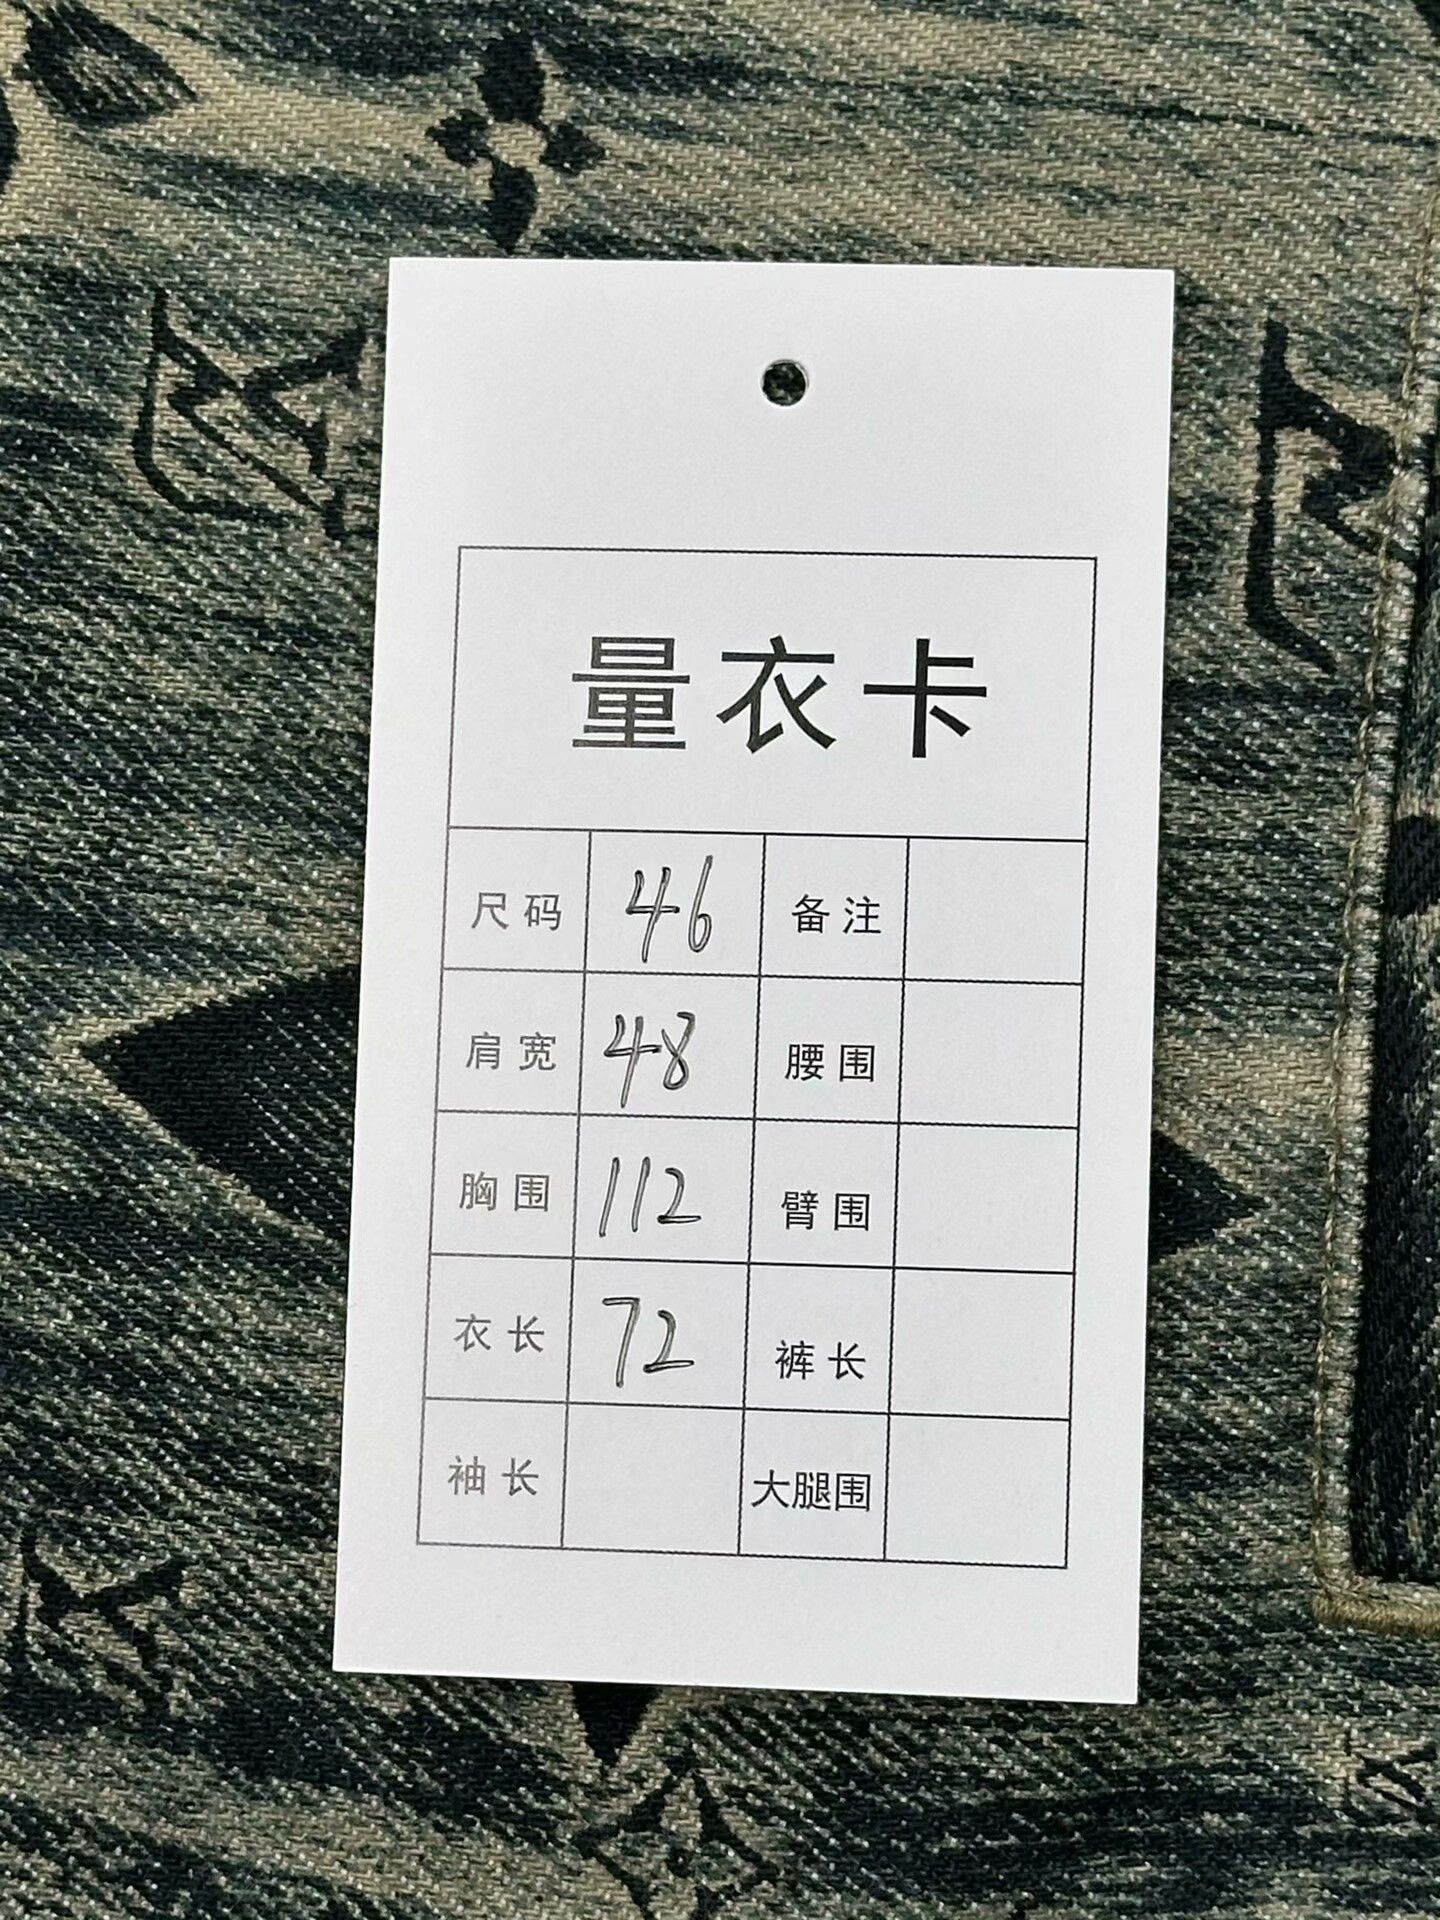 量衣卡
尺码 46 备注
肩宽 48 腰围
胸围 112 臂围
衣长 72 裤长
袖长 大腿围